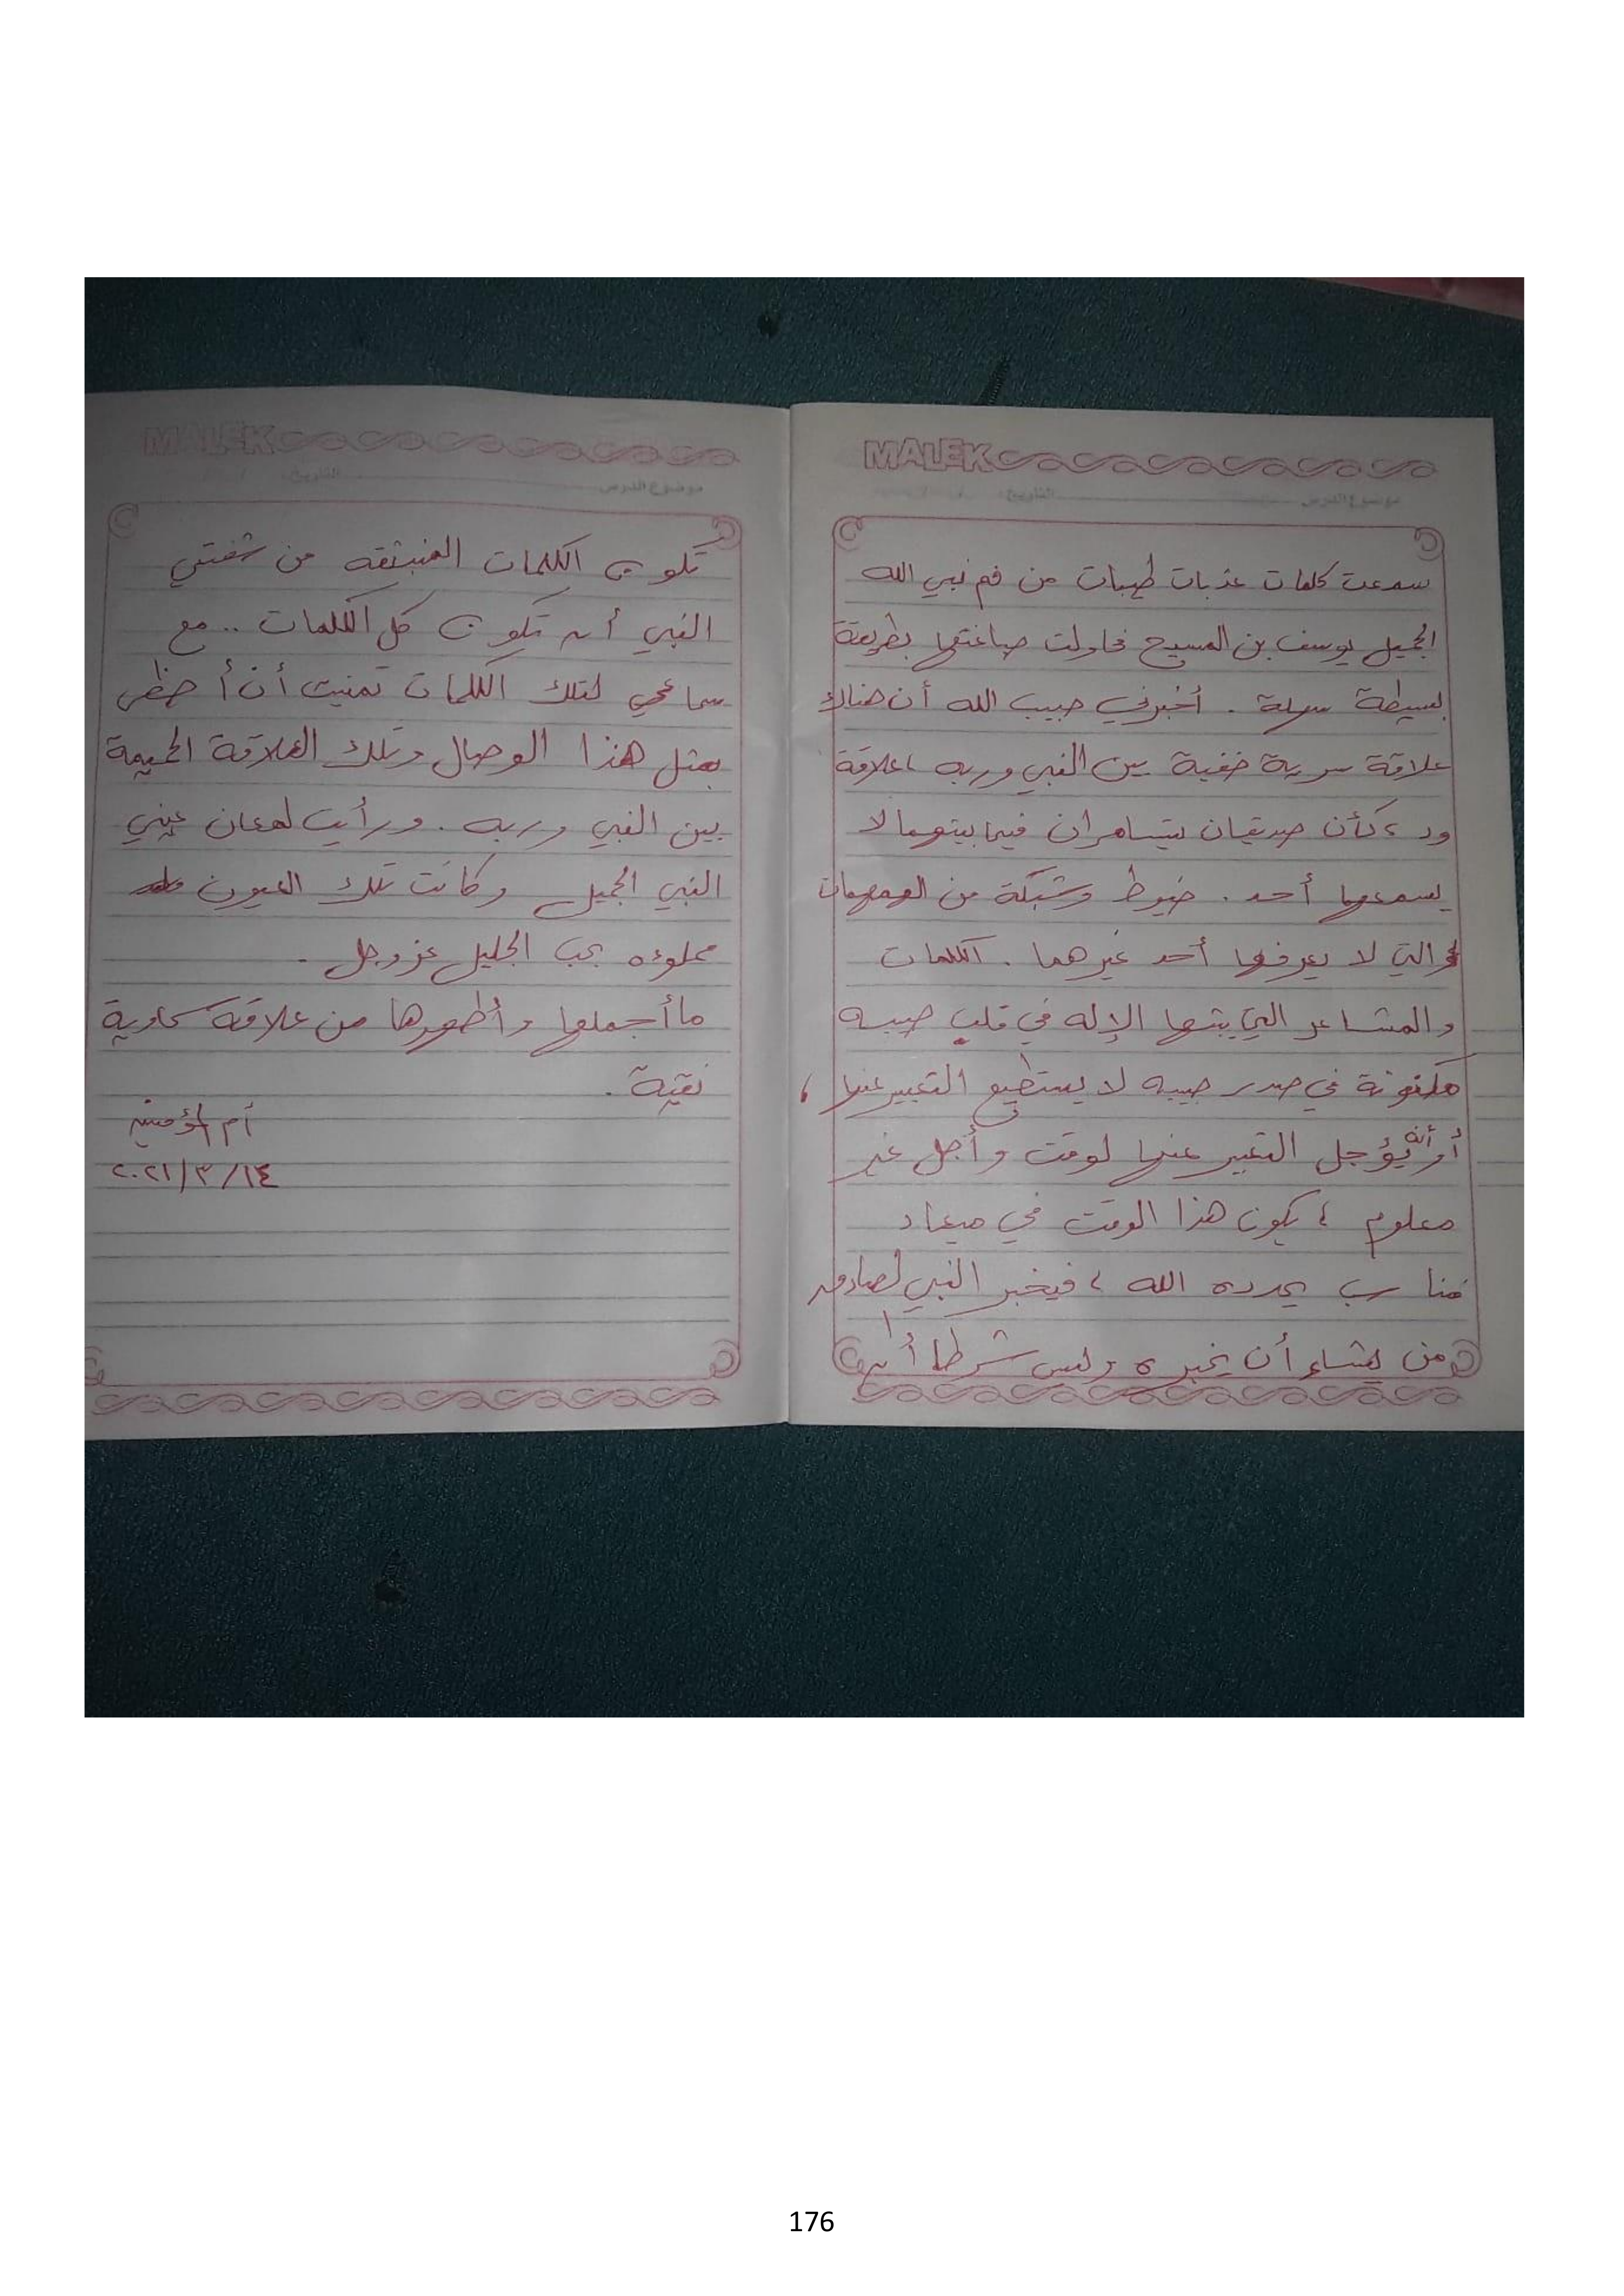 MALEK
موضوع الدرس التاريخ
سمعت كلمات عذبات طيبات من فم نبي الله
الجميل يوسف بن المسيح فحاولت صياغتها بطريقة
بسيطة سهلة . أخبرني حبيب الله أن هناك
علاقة سرية خفية بين النبي وربه ، علاقة
ود ، كأن صديقان يتسامران فيما بينهما لا
يسمعها أحد . خيوط وشبكة من الهمهمات
والتي لا يعرفها أحد غيرهما . الكلمات
والمشاعر التي يبثها الإله في قلب حبيبه
مكنونة في صدر حبيبه لا يستطيع التعبير عنها ،
أو أنه يؤجل التعبير عنها لوقت وأجل غير
معلوم ، يكون هذا الوقت في ميعاد
مناسب يحدده الله ، فيخبر النبي الصادق
من يشاء أن يخبره وليس شرطا أن
MALEK
موضوع الدرس التاريخ
تكون الكلمات المنبثقه من شفتي
النبي أن تكون كل الكلمات .. مع
سماعي لتلك الكلمات تمنيت أن أحظى
بمثل هذا الوصال وتلك العلاقة الحميمة
بين النبي وربه . ورأيت لمعان عيني
النبي الجميل وكانت تلك العيون
مملوءه بحب الجليل عز وجل .
ما أجملها وأطهرها من علاقة سماوية
نقية .
أم المؤمنين
١٤/٣/٢٠٢١
176